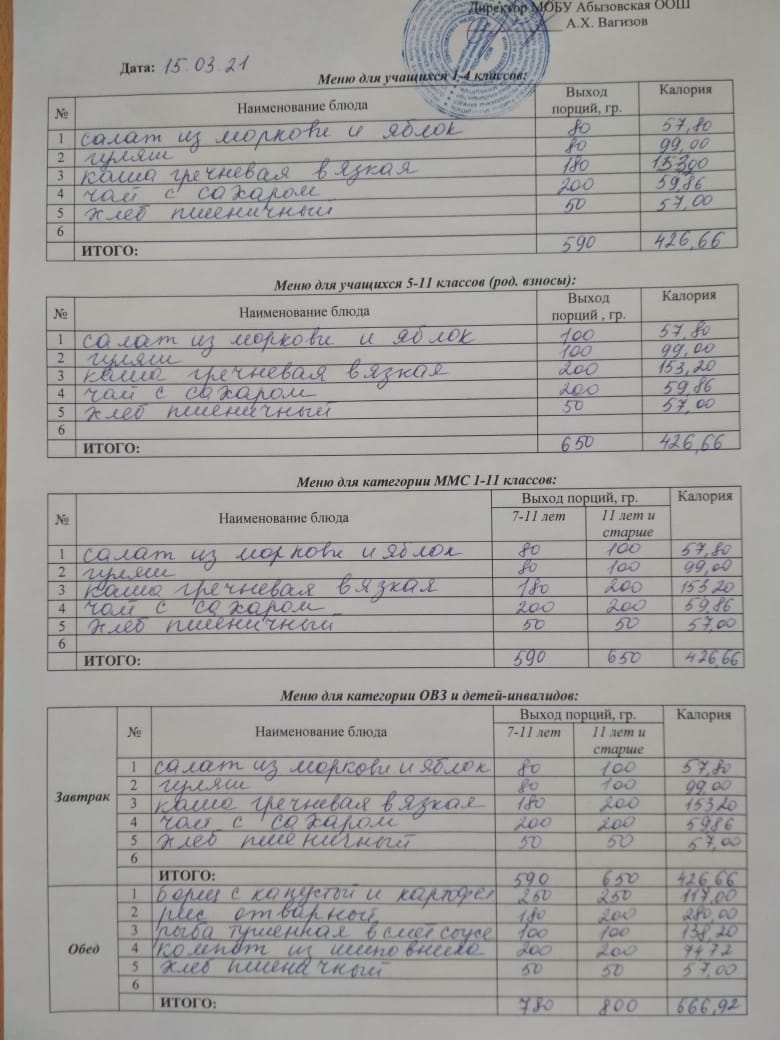 Директор МОБУ Абызовская ООШ
А.Х. Вагизов
Дата: 15.03.21
Меню для учащихся 1-4 классов:
№ Наименование блюда Выход порций, гр. Калория
1 салат из моркови и яблок 80 57,80
2 гуляш 80 99,00
3 каша гречневая вязкая 180 15300
4 чай с сахаром 200 59,86
5 хлеб пшеничный 50 57,00
6
ИТОГО: 590 426,66
Меню для учащихся 5-11 классов (род. взносы):
№ Наименование блюда Выход порций , гр. Калория
1 салат из моркови и яблок 100 57,80
2 гуляш 100 99,00
3 каша гречневая вязкая 200 153,20
4 чай с сахаром 200 59,86
5 хлеб пшеничный 50 57,00
6
ИТОГО: 650 426,66
Меню для категории ММС 1-11 классов:
№ Наименование блюда Выход порций, гр. Калория
7-11 лет 11 лет и старше
1 салат из моркови и яблок 80 100 57,80
2 гуляш 80 100 99,00
3 каша гречневая вязкая 180 200 153,20
4 чай с сахаром 200 200 59,86
5 хлеб пшеничный 50 50 57,00
6
ИТОГО: 590 650 426,66
Меню для категории ОВЗ и детей-инвалидов:
№ Наименование блюда Выход порций, гр. Калория
7-11 лет 11 лет и старше
Завтрак
1 салат из моркови и яблок 80 100 57,80
2 гуляш 80 100 99,00
3 каша гречневая вязкая 180 200 15320
4 чай с сахаром 200 200 5986
5 хлеб пшеничный 50 50 57,00
6
ИТОГО: 590 650 426,66
Обед
1 Борщ с капустой и картофел 250 250 117,00
2 рис отварный 180 200 280,00
3 рыба тушенная в смет соусе 100 100 138,20
4 компот из шиповника 200 200 7472
5 хлеб пшеничный 50 50 57,00
6
ИТОГО: 780 800 666,92